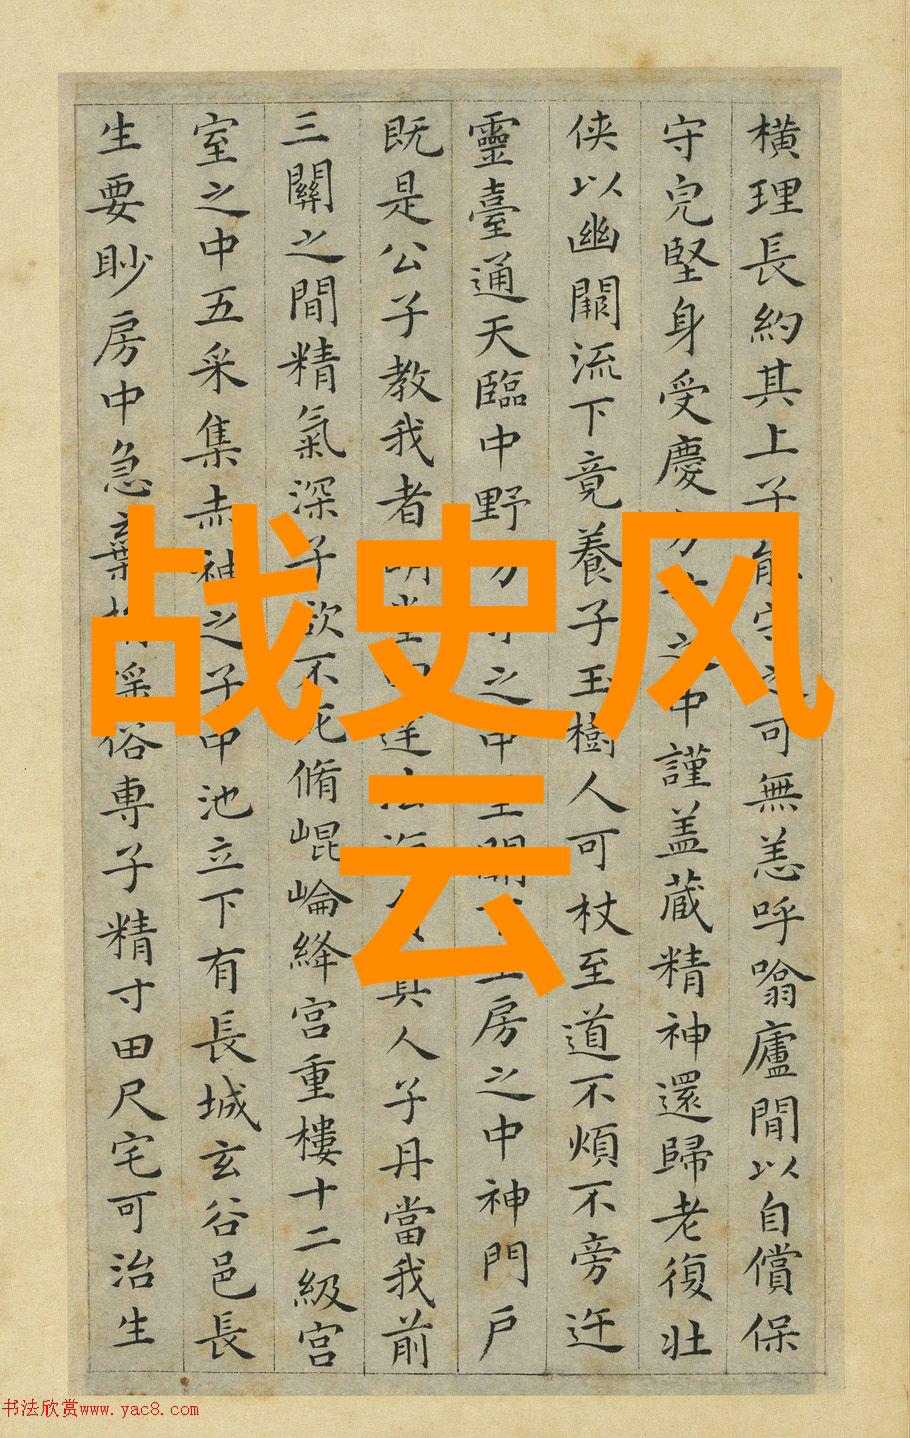 横理長約其上子能守之可無恙呼噏廬間以自償保
守皃堅身受慶方寸之中謹盖蔵精神還歸老復壮
侠以幽闕流下竟養子玉樹人可杖至道不煩不旁迕
靈臺通天臨中野方寸之中至關下玉房之中神門戶
既是公子教我者明堂四達法海員真人子丹當我前
三關之間精氣深子欲不死脩崐崘絳宮重樓十二級宮
室之中五采集赤神之子中池立下有長城玄谷邑長
生要眇房中急棄捐淫俗専子精寸田尺宅可治生
战史风
云
书法欣赏www.yac8.com